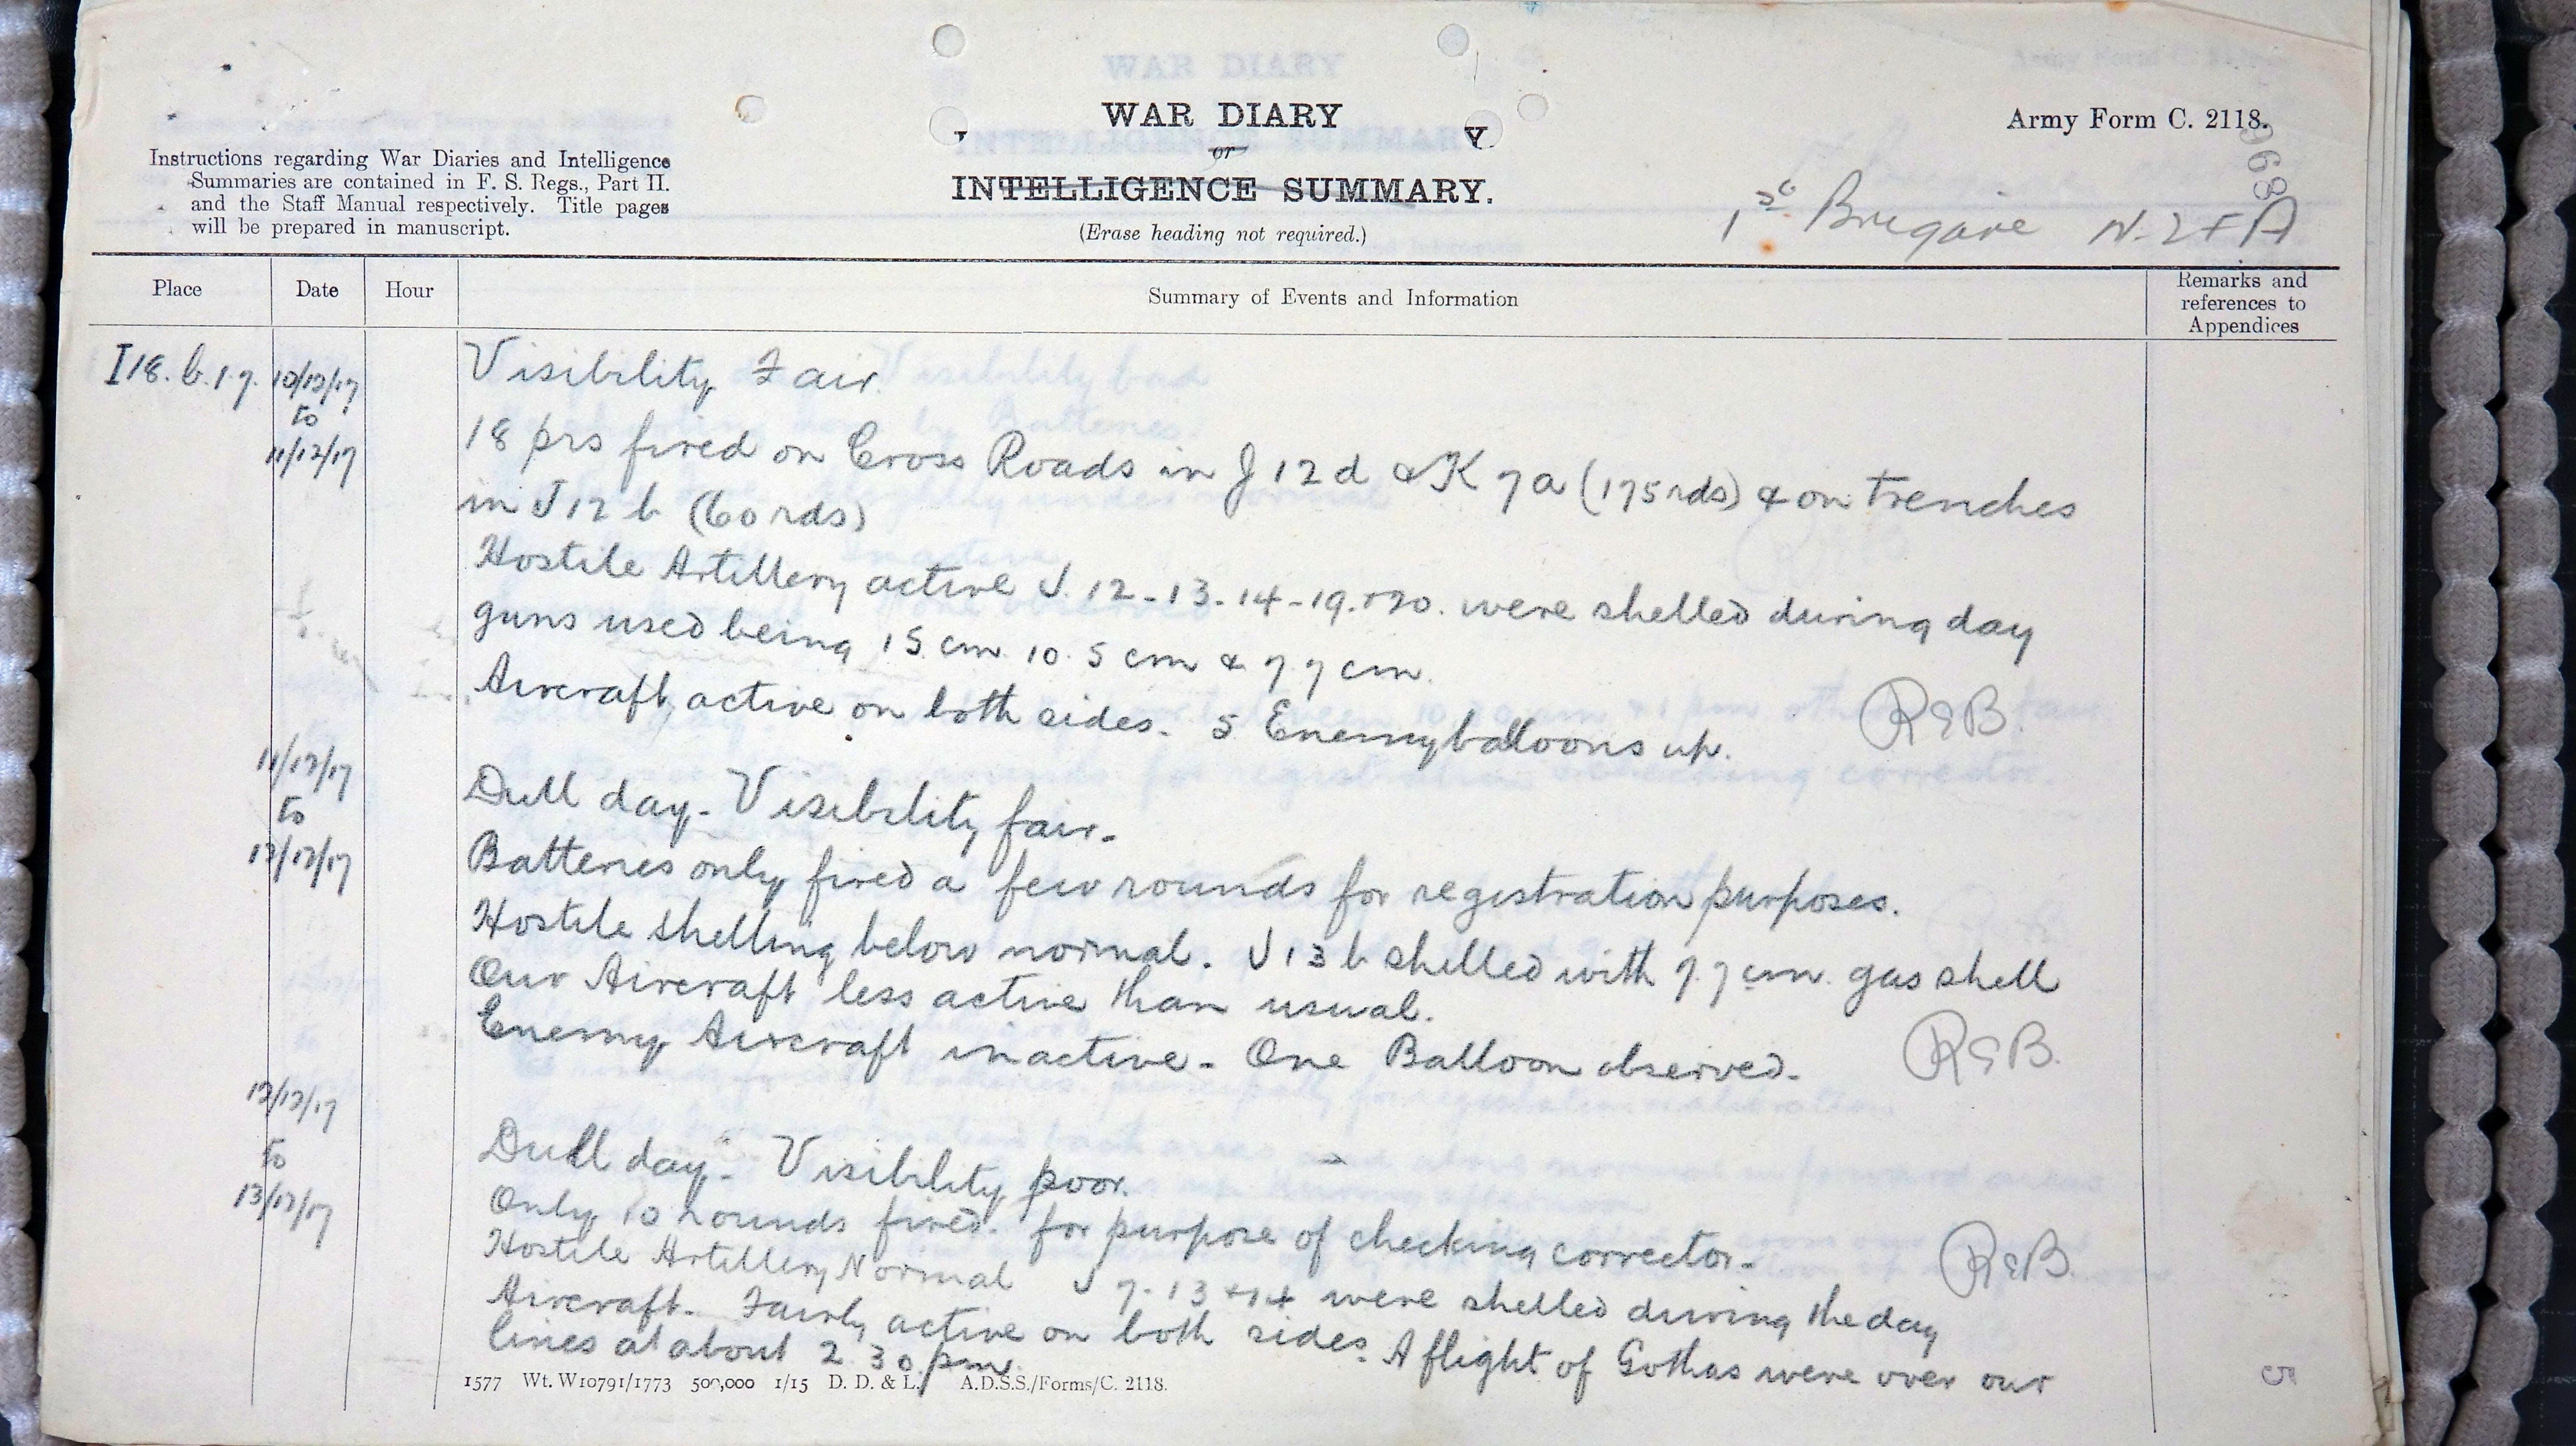 WAR DIARY
or
INTELLIGENCE SUMMARY.
(Erase heading not required.)
Army Form C. 2118.
Instructions regarding War Diaries and Intelligence
Summaries are contained in F. S. Regs., Part II.
and the Staff Manual respectively. Title pages
will be prepared in manuscript.
1st Brigade N.Z.F.A
Place
Date
Hour
Summary of Events and Information
Remarks and
references to
Appendices
I 18. b. 1.7.
10/12/17
to
11/12/17
Visibility Fair.
18 prs fired on Cross Roads in J 12 d & K 7 a (175 rds) & on trenches
in J 12 b (60 rds)
Hostile Artillery active J. 12-13-14-19.&20. were shelled during day
guns used being 15 cm 10.5 cm & 7.7 cm.
Aircraft active on both sides. 5 Enemy balloons up.
REB.
11/12/17
to
12/12/17
Dull day. Visibility fair.
Batteries only fired a few rounds for registration purposes.
Hostile shelling below normal. J 13 b shelled with 7.7 cm. gas shell
Our Aircraft less active than usual.
Enemy Aircraft inactive. One Balloon observed.
REB.
12/12/17
to
13/12/17
Dull day. Visibility poor.
Only 10 rounds fired. for purpose of checking corrector.
REB.
Hostile Artillery Normal J 7. 13 & 14 were shelled during the day
Aircraft. Fairly active on both sides. A flight of Gothas were over our
lines at about 2.30 pm.
1577 Wt. W10791/1773 500,000 1/15 D. D. & L. A.D.S.S./Forms/C. 2118.
5